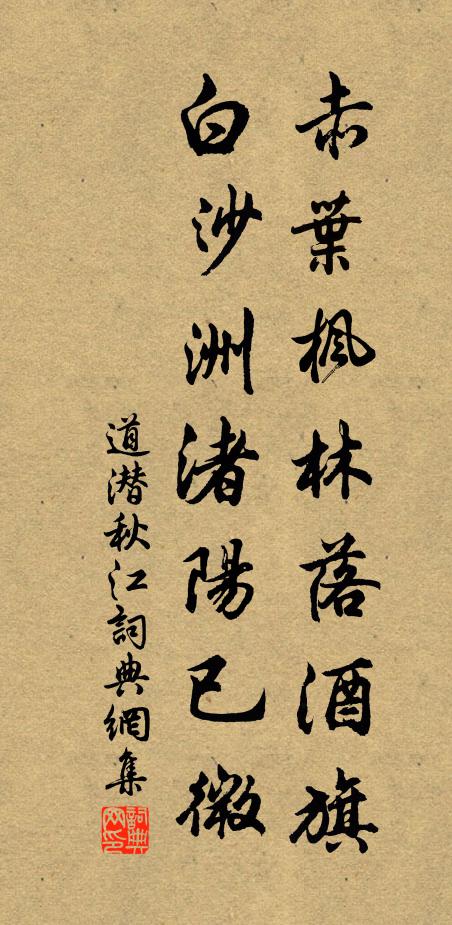 赤葉楓林落酒旗
白沙洲渚陽已微
道潜秋江詞典網集
詞典網印